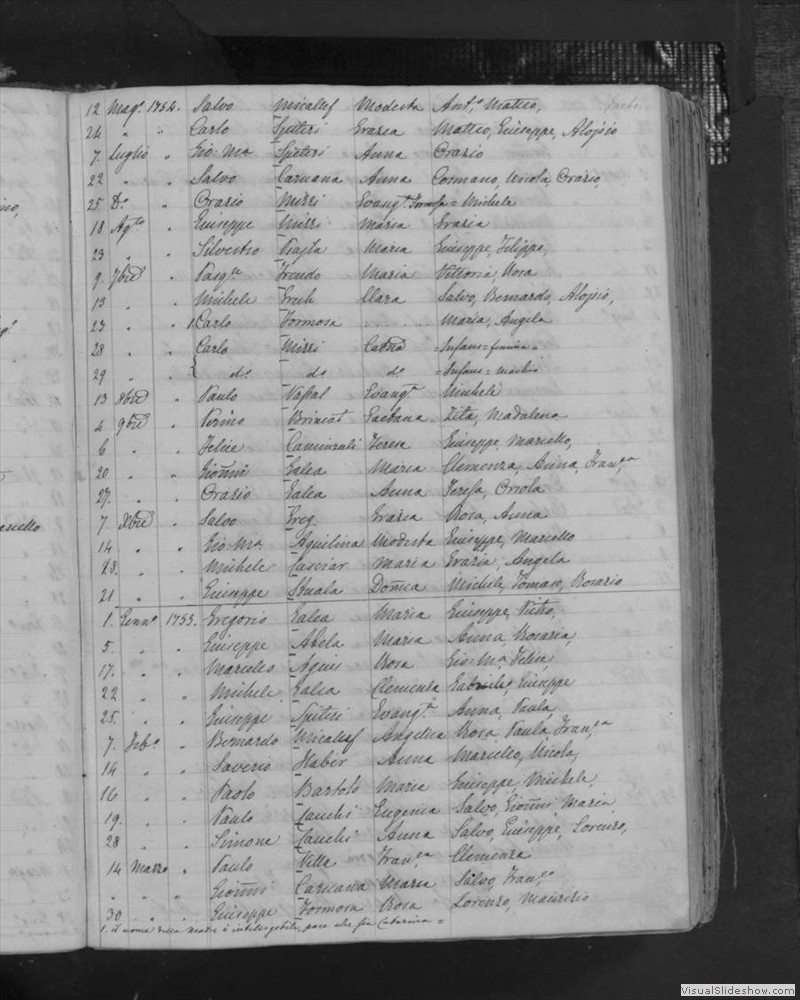 12 Mag.º 1754. Salvo Micallef Modesta Ant.º Matteo,
24 " " Carlo Spiteri Grazia Matteo, Giuseppe, Alojsio
7 Luglio " Gio: Ma Spiteri Anna Orazio
22 " " Salvo Caruana Anna Cosmano, Nicola, Orazio,
25 D.º " Orazio Mizzi Evang.ta = Michele
18 Ag.to " Giuseppe Mizzi Maria Grazia
23 " " Silvestro Maria Giuseppe, Filippo,
9 7bre " Pasq.le Trevdo Maria Vittoria, Rosa
13 " " Michele Grech Clara Salvo, Bernardo, Alojsio,
23 " " 1. Carlo Formosa ..... Maria, Angela
28 " " Carlo Mizzi =Infans=femina=
29 " " { d.º d.º d.º =Infans=maschio
13 8bre " Paulo Vassal Evang.ta Michele
4 9bre " Brincat Gaetana Zita, Madalena
6 " " Felice Caminzuli Teresa Giuseppe, Marcello,
20 " " Gioñni Galea Maria Clemenza, Anna, Fran.ca
27. " " Orazio Galea Anna Teresa, Orsola
7 Xbre " Salvo Greg Grazia Rosa, Anna
14 " " Gio. Ma. Aquilina Modesta Giuseppe, Marcello
18. " " Michele Casciar Maria Grazia, Angela
21 " " Giuseppe Donca Michele, Tomaso, Rosario
1. Genn.º 1755. Gregorio Galea Maria Giuseppe, Pietro,
5 " " Giuseppe Abela Maria Anna, Rosaria,
17. " " Marcello Agius Rosa Gio: Ma, Felice
22 " " Michele Galea Clemenza Gabriele, Giuseppe
25. " " Giuseppe Spiteri Evang.ta Anna, Paula,
7. Feb.º " Bernardo Micallef Angelica Rosa, Paula, Fran.ca
14 " " Saverio Haber Anna Marcello, Nicola,
16 " " Paolo Bartolo Maria Giuseppe, Michele,
19. " " Paulo Cauchi Eugenia Salvo, Gioñni, Maria
28 " " Simone Cauchi Anna Salvo, Giuseppe, Lorenzo,
14 Marzo " Paulo Vella Fran.ca Clemenza
" " " Gioñni Caruana Maria Salvo, Fran.co
30 " " Giuseppe Formosa Rosa Lorenzo, Maurizio
1. il nome della madre è intelegibile, pare che sia Catarina =
VisualSlideshow.com